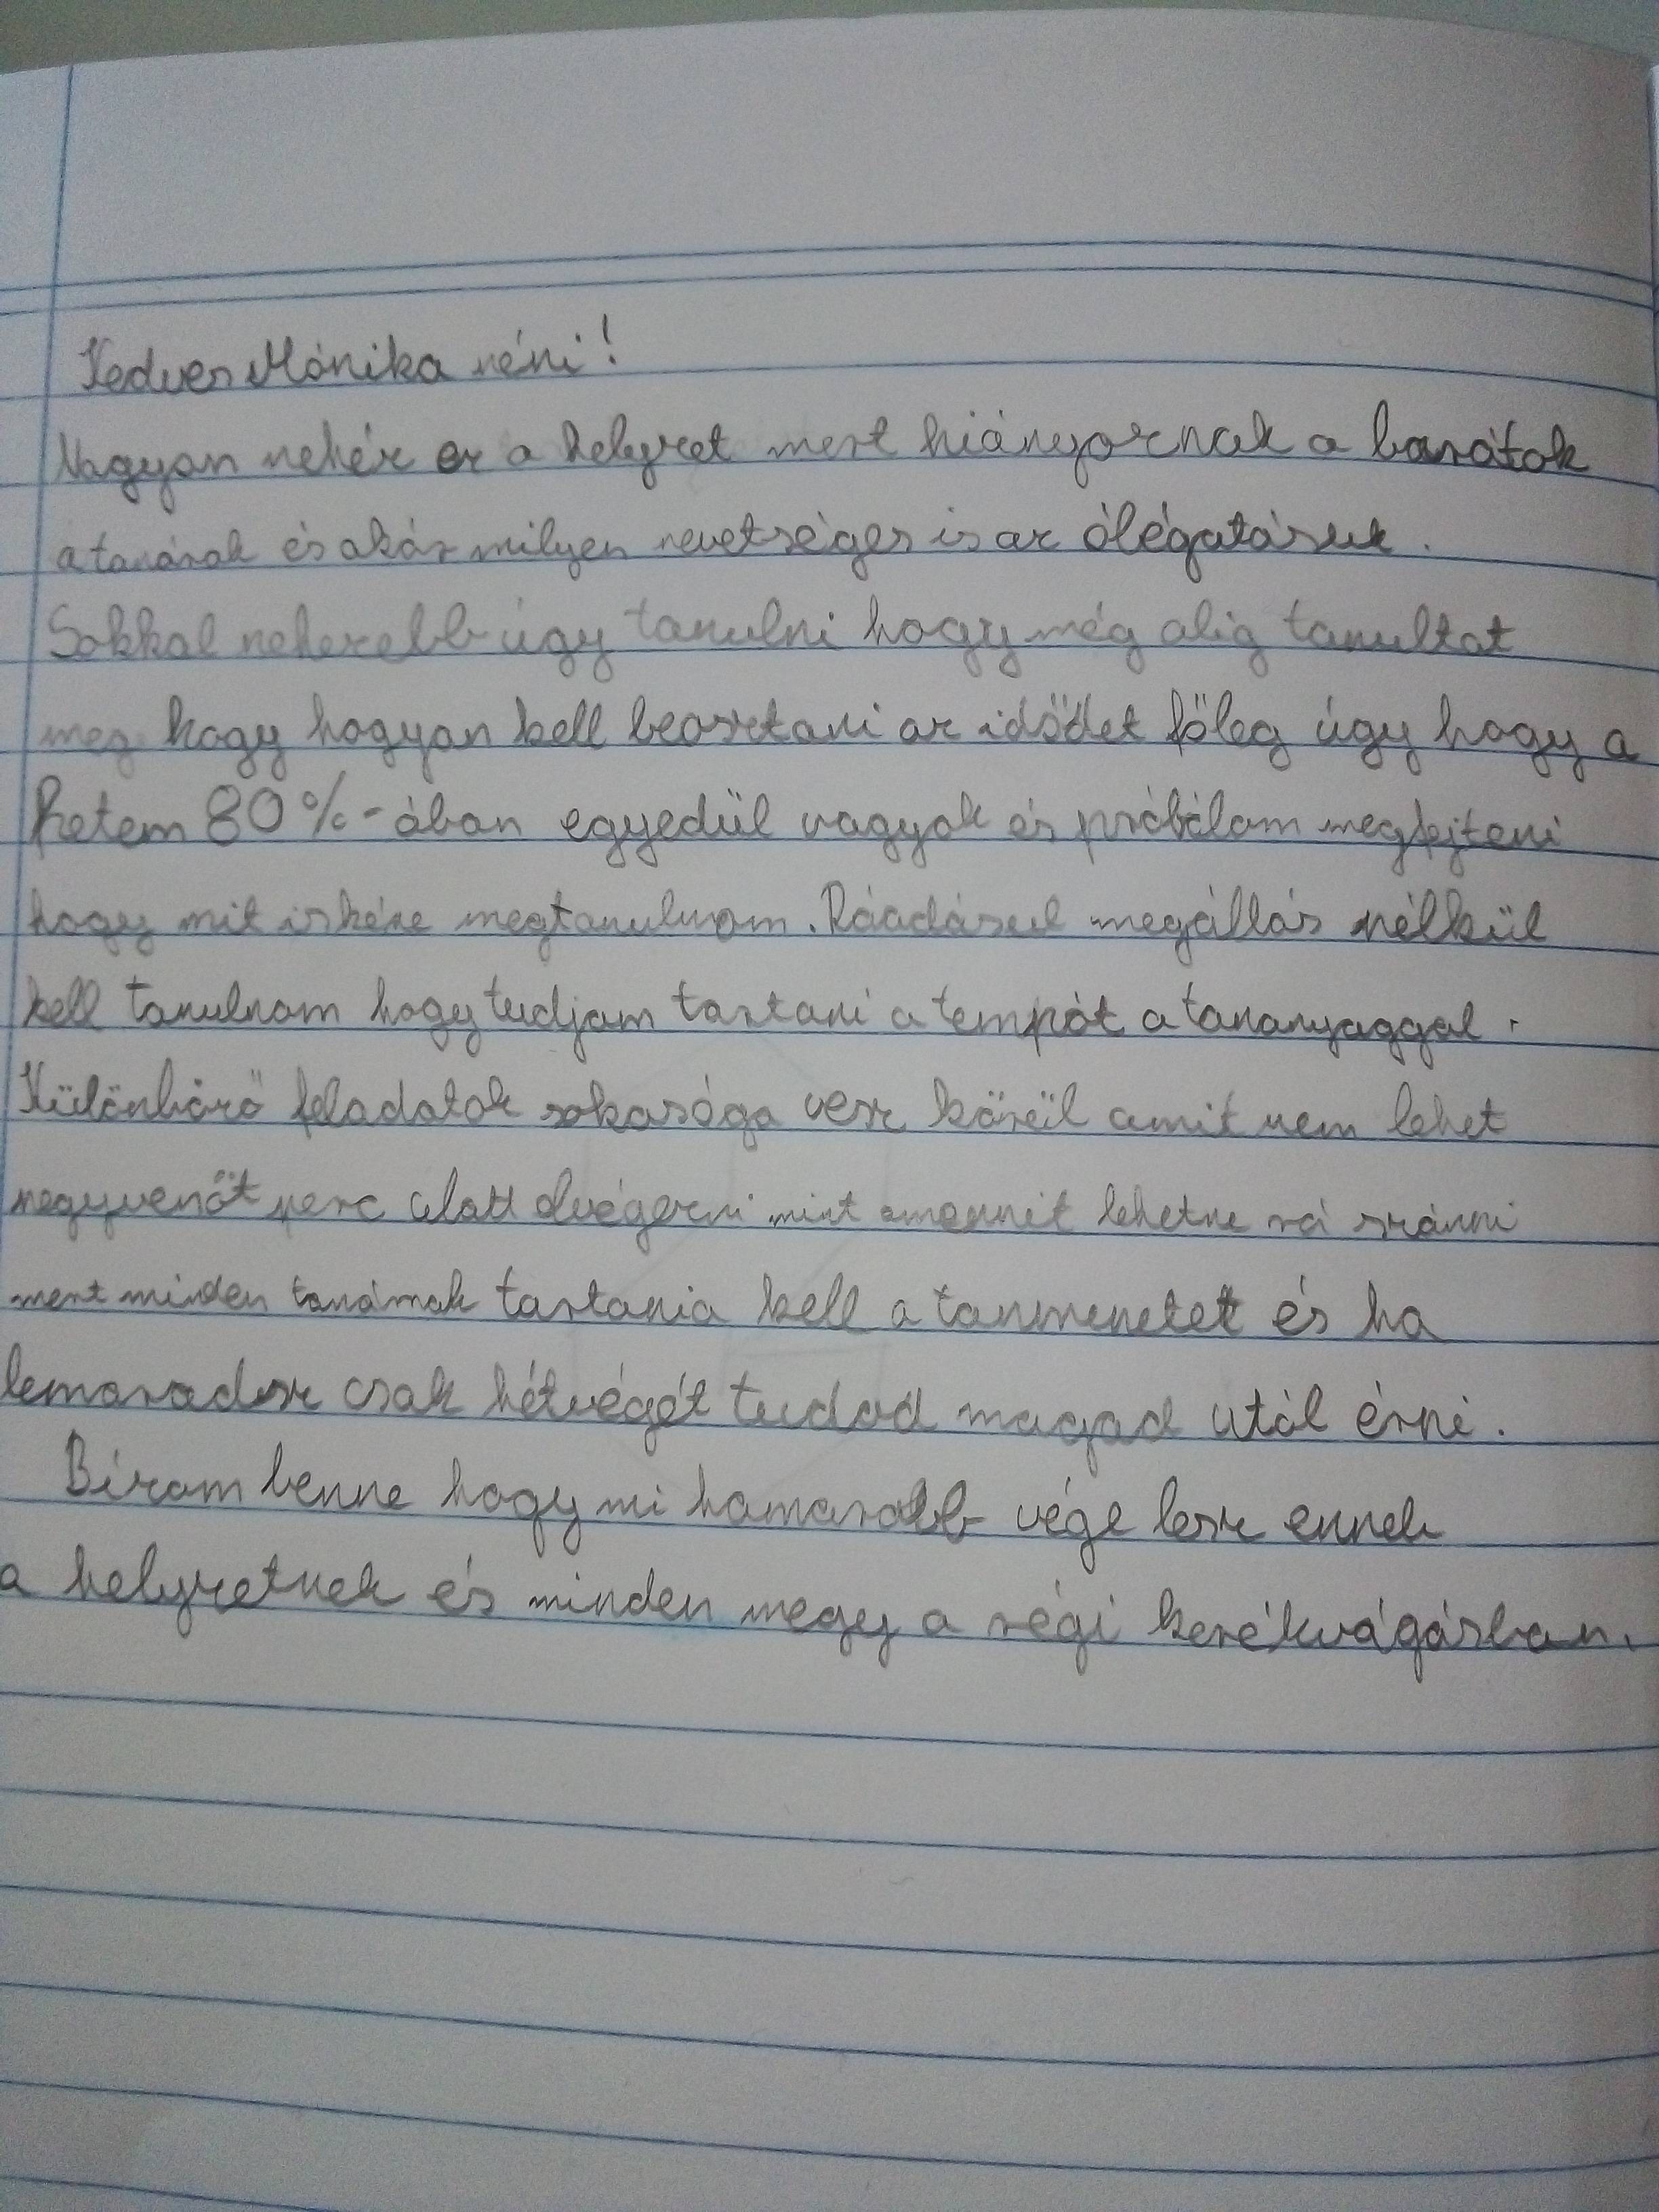 Kedves Mónika néni!
Nagyon nehéz ez a helyzet mert hiányoznak a barátok
a tanárok és akár milyen nevetséges is az ölégatásuk.
Sokkal nehezebb úgy tanulni hogy még alig tanultat
meg hogy hogyan kell beosztani az idődet főleg úgy hogy a
hetem 80%-ában egyedül vagyok és próbálom megfejteni
hogy mit is kéne megtanulnom. Ráadásul megállás nélkül
kell tanulnom hogy tudjam tartani a tempót a tananyaggal.
Különböző feladatok sokasága vesz körül amit nem lehet
negyvenöt perc alatt elvégezni mint amennit lehetne rá szánni
mert minden tanárnak tartania kell a tanmenetet és ha
lemaradsz csak hétvégét tudod magad utól érni.
Bízom benne hogy mi hamarabb vége lesz ennek
a helyzetnek és minden megy a régi kerékvágásban.